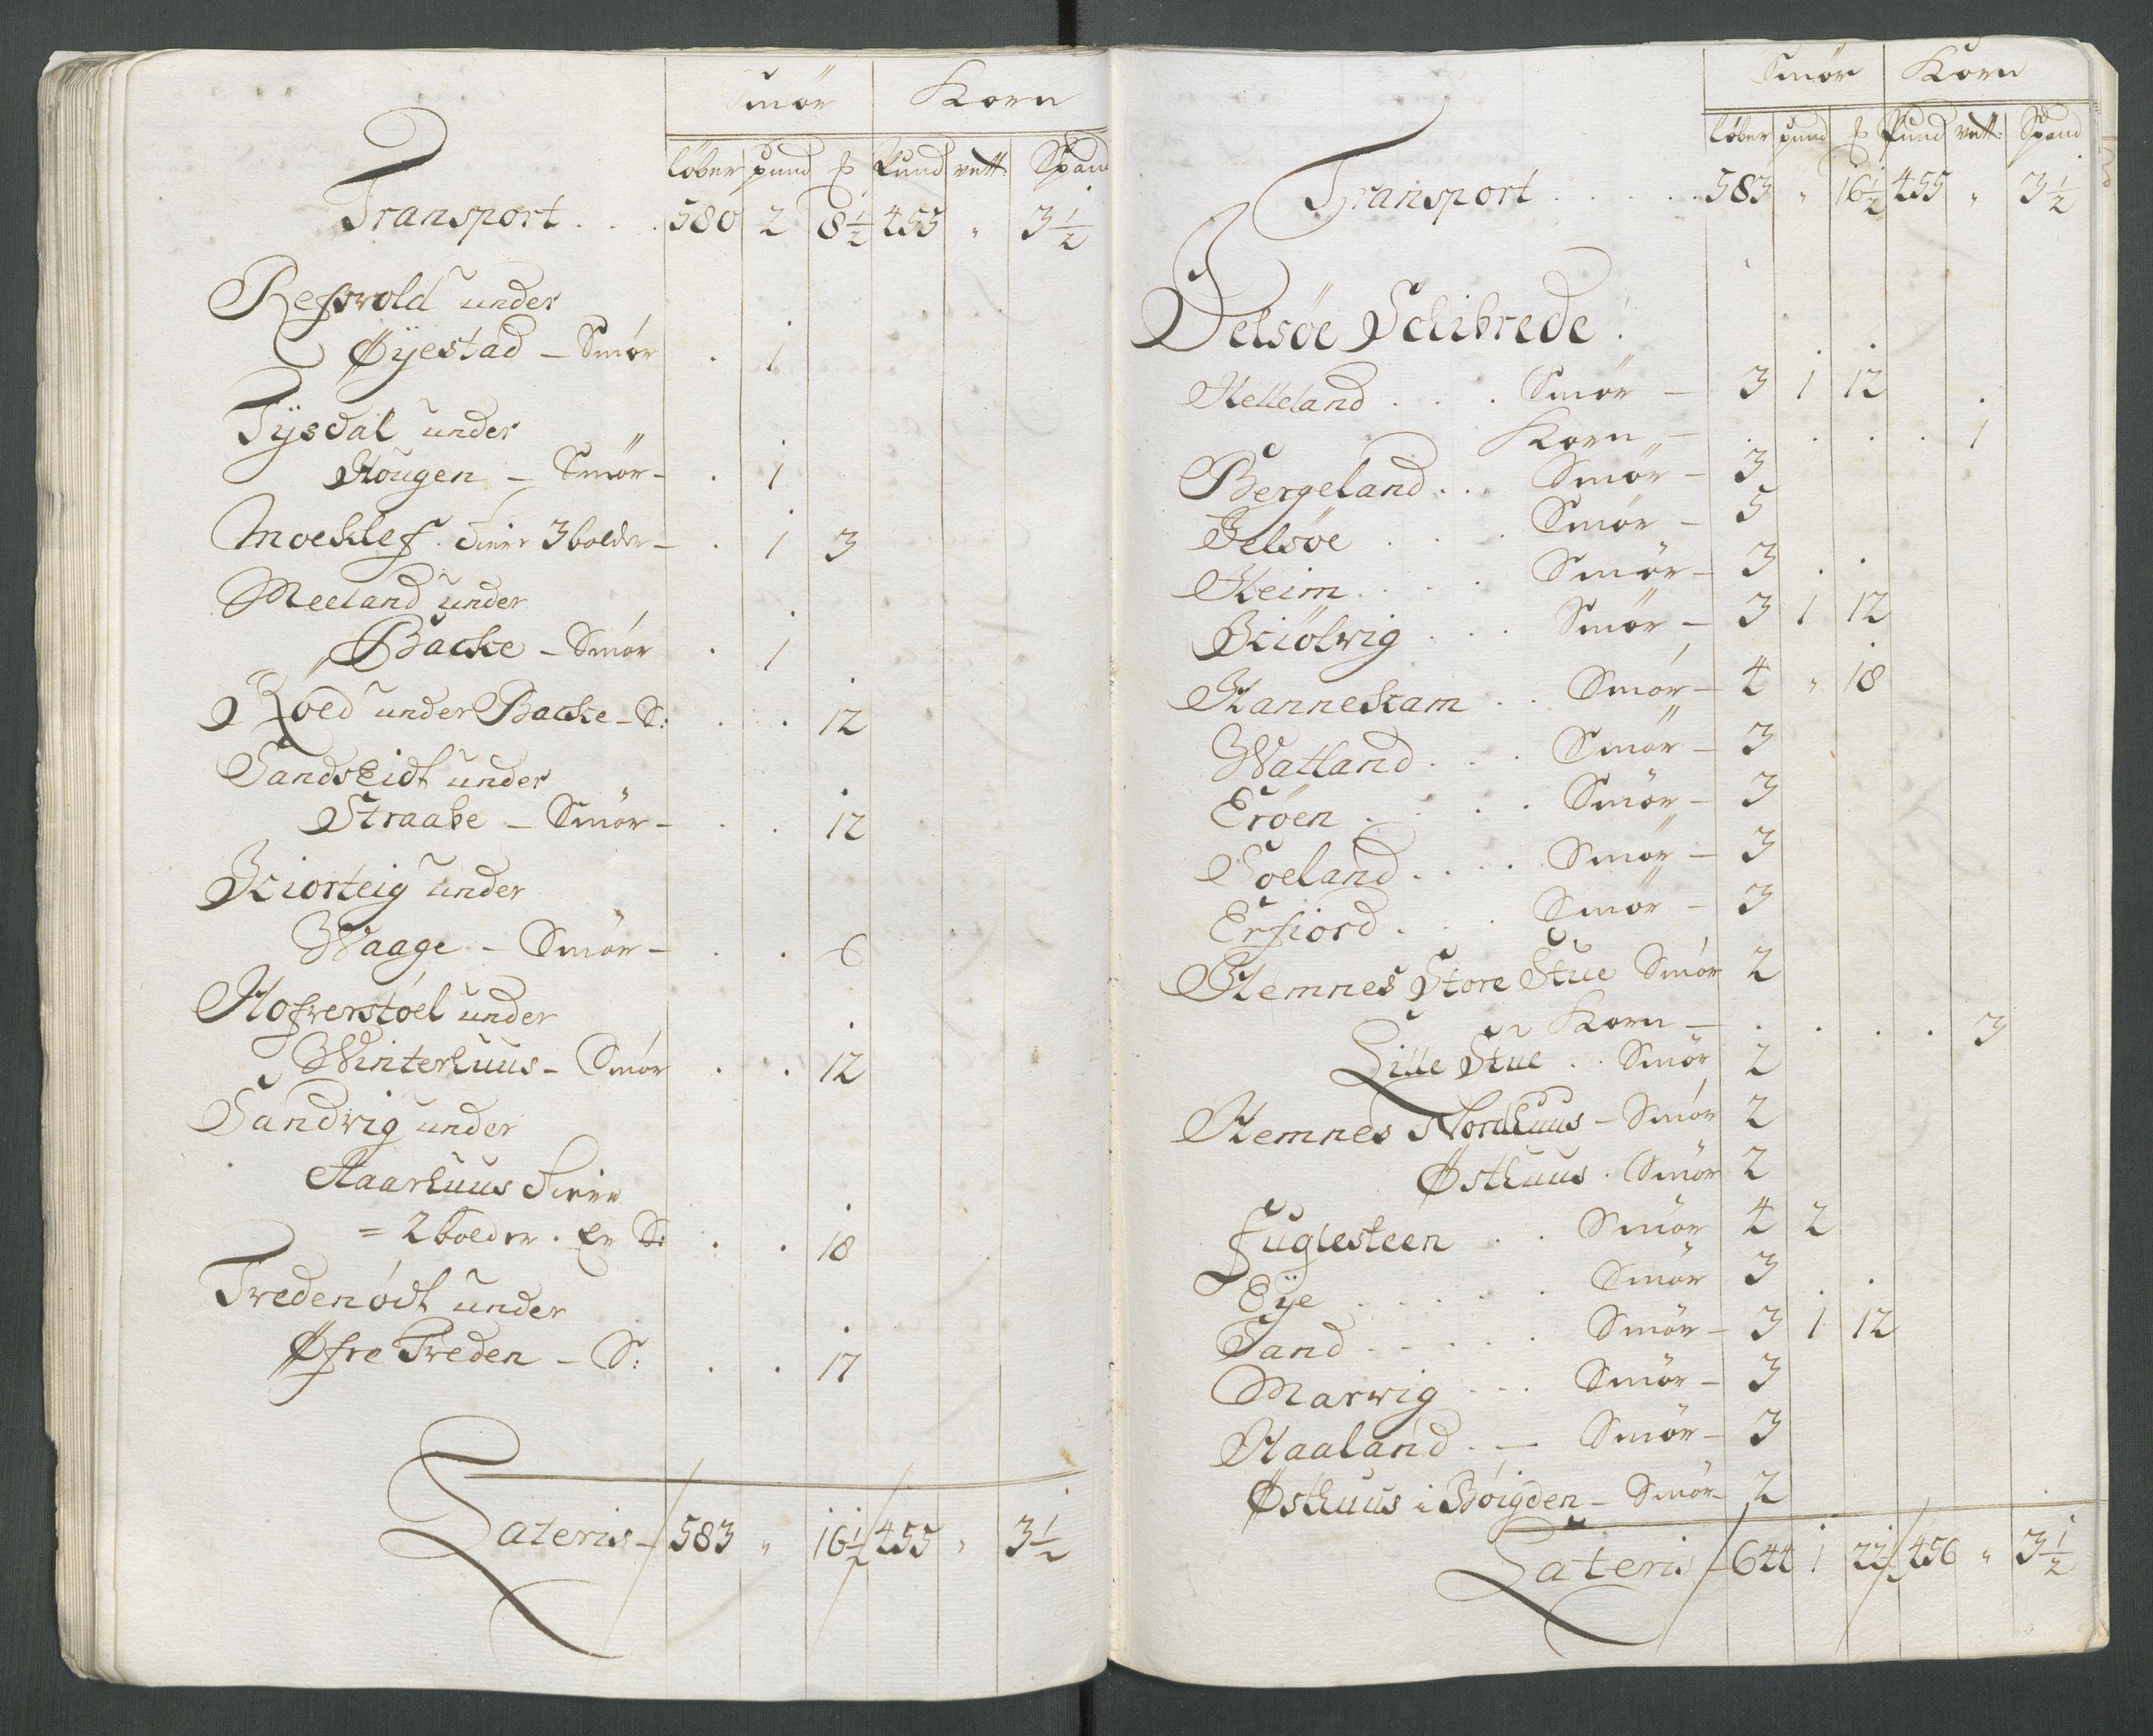 Smör Korn
löber pund ℔ Pund vett: Spand
Transport . . . 580 2 8½ 455 „ 3½
Refsvold under
Øÿestad - Smör . 1
Tÿsdal under
Hougen - Smör - . 1
Moeklef. 3 bolder - . 1 3
Meeland under
Backe - Smör . 1
Roed under Backe - S: . . 12
Sandseidt under
Straabe - Smör - . . 12
Kiorteig under
Waage - Smör - . . 6
Hofverstöel under
Winterhuus - Smör . . 12
Sandvig under
Aaarhuus
= 2 bolder. Er S: . . 18
Tredenödt under
Øfre Treden - S: . . 17
Lateris - 583 „ 16½ 455 „ 3½
Smör Korn
löber pund ℔ Pund vett: Spand
Transport . . . . . 583 „ 16½ 455 „ 3½
Jelsöe Schibrede.
Helleland . . . Smör - 3 1 12
Korn - . . . . 1
Bergeland . . Smör - 3
Jelsöe . . . Smör - 5
Heim . . . Smör - 3
Kiölvig . . . Smör - 3 1 12
Hannekam . . Smör - 4 „ 18
Watland . . . Smör - 3
Eröen . . . Smör - 3
Soeland . . . . Smör - 3
Erfiord . . . Smör - 3
Hemnes Store Stue Smör 2
Korn - . . . . 3
Lille Stue . . Smör 2
Hemnes Nordhuus - Smör 2
Østhuus . Smör 2
Fuglesteen . . Smör 4 2
Eÿe . . . . . Smör 3
Sand - - . . . Smör - 3 1 12
Marvig - - . Smör - 3
Haaland . - Smör - 3
Østhuus i Böigden - Smör - 2
Lateris - 644 1 22½ 456 „ 3½